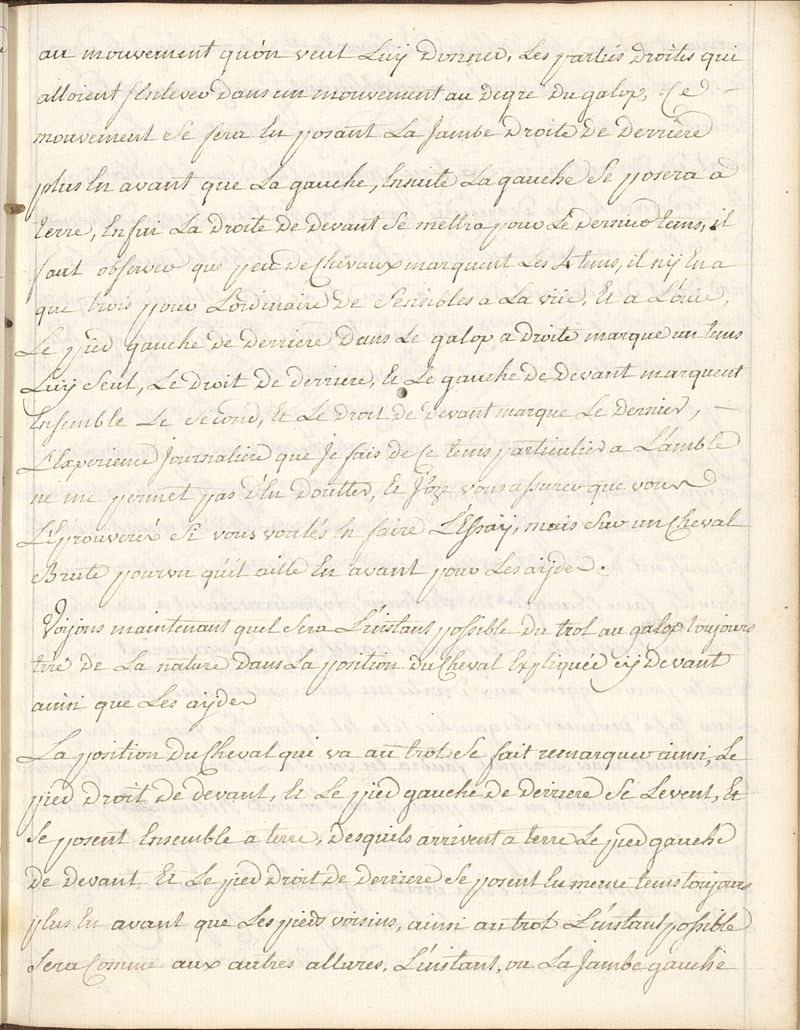 au mouvement qu'on veut Luy Donner, Les parties Droites qui
alloient s'Enlever Dans un mouvement au Degré Du galop, Ce
mouvement se fera En posant La Jambe Droite De Derriere
plus En avant que La gauche, Ensuite La gauche Se posera a
terre, Enfin La Droite De Devant Se mettra pour Le Dernier tems, il
faut observer que peu De Chevaux marquent Les 4 tems, il n'y En a
que trois pour L'ordinaire De Sensibles a La vüe, Et a L'ouie,
Le pied gauche De Derriere Dans Le galop a Droite marque un tems
Luy Seul, Le Droit De derriere, Et Le gauche De Devant marquent
Ensemble Le Second, Et Le Droit De Devant marque Le Dernier,
L'Experience Journaliere que Je fais De Ce tems particulier a L'amble
ne me permet pas d'En Doutter, Et J'oze vous assurer que vous
L'Eprouveréz Si vous voulés En faire L'Essay, mais Sur un Cheval
Brute pourvu qu'il aille En avant pour Les ayder.
Voyons maintenant quel Sera L'instant possible Du trot au galop toujours
tiré De La nature Dans La position Du Cheval Expliquée cy Devant
ainsi que Les ayde
La position Du Cheval qui va au trot Se fait remarquer ainsi, Le
pied Droit De devant, Et Le pied gauche De Derriere Se Levent, Et
Se posent Ensemble a terre, Desquils arrivent a terre Le pied gauche
De Devant Et Le pied Droit De Derriere Se posent En meme tems toujours
plus En avant que Les pieds voisins, ainsi au trot L'instant possible
Sera Comme aux autres allures, L'instant, ou La Jambe gauche